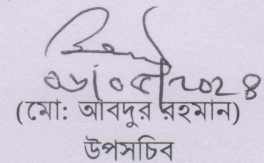 ০৬/০৫/২০২৪
(মো: আবদুর রহমান)
উপসচিব